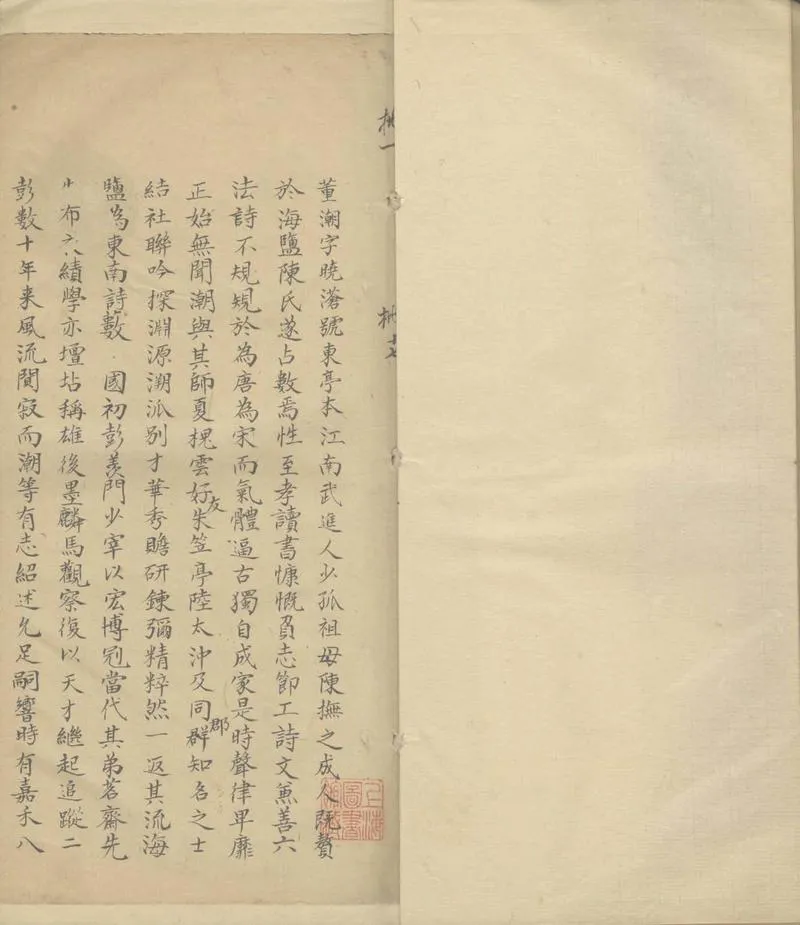 董潮字曉滄號東亭本江南武進人少孤祖母陳撫之成人既贅
於海鹽陳氏遂占數焉性至孝讀書慷慨負志節工詩文兼善六
法詩不規規於為唐為宋而氣體逼古獨自成家是時聲律卑靡
正始無聞潮與其師夏槐雲好友朱笠亭陸太沖及同群郡知名之士
結社聯吟探淵源溯派別才華秀贍研鍊彌精粹然一返其流海
鹽為東南詩藪國初彭羨門少宰以宏博冠當代其弟茗齋先
布衣績學亦壇坫稱雄後墨麟馬觀察復以天才繼起追蹤二
彭數十年来風流闃寂而潮等有志紹述允足嗣響時有嘉禾八